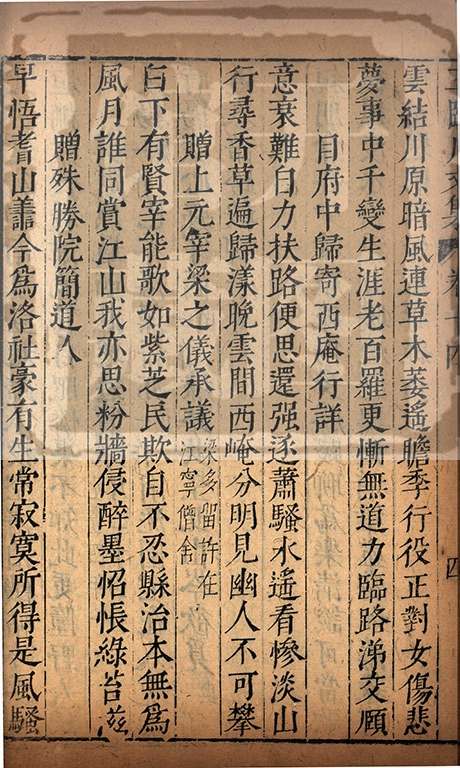 王臨川文集 卷十四 四
雲結川原暗風連草木萎遙瞻季行役正對女傷悲
夢事中千變生涯老百羅更慚無道力臨路涕交頤
自府中歸寄西庵行詳
意衰難自力扶路便思還强逐蕭騷水遙看慘淡山
行尋香草遍歸漾晚雲間西崦分明見幽人不可攀
贈上元宰梁之儀承議 梁多留許在
江寧僧舍
白下有賢宰能歌如紫芝民欺自不忍縣治本無爲
風月誰同賞江山我亦思粉牆侵醉墨怊悵綠苔滋
贈殊勝院簡道人
早悟耆山譱今爲洛社豪有生常寂寞所得是風騷